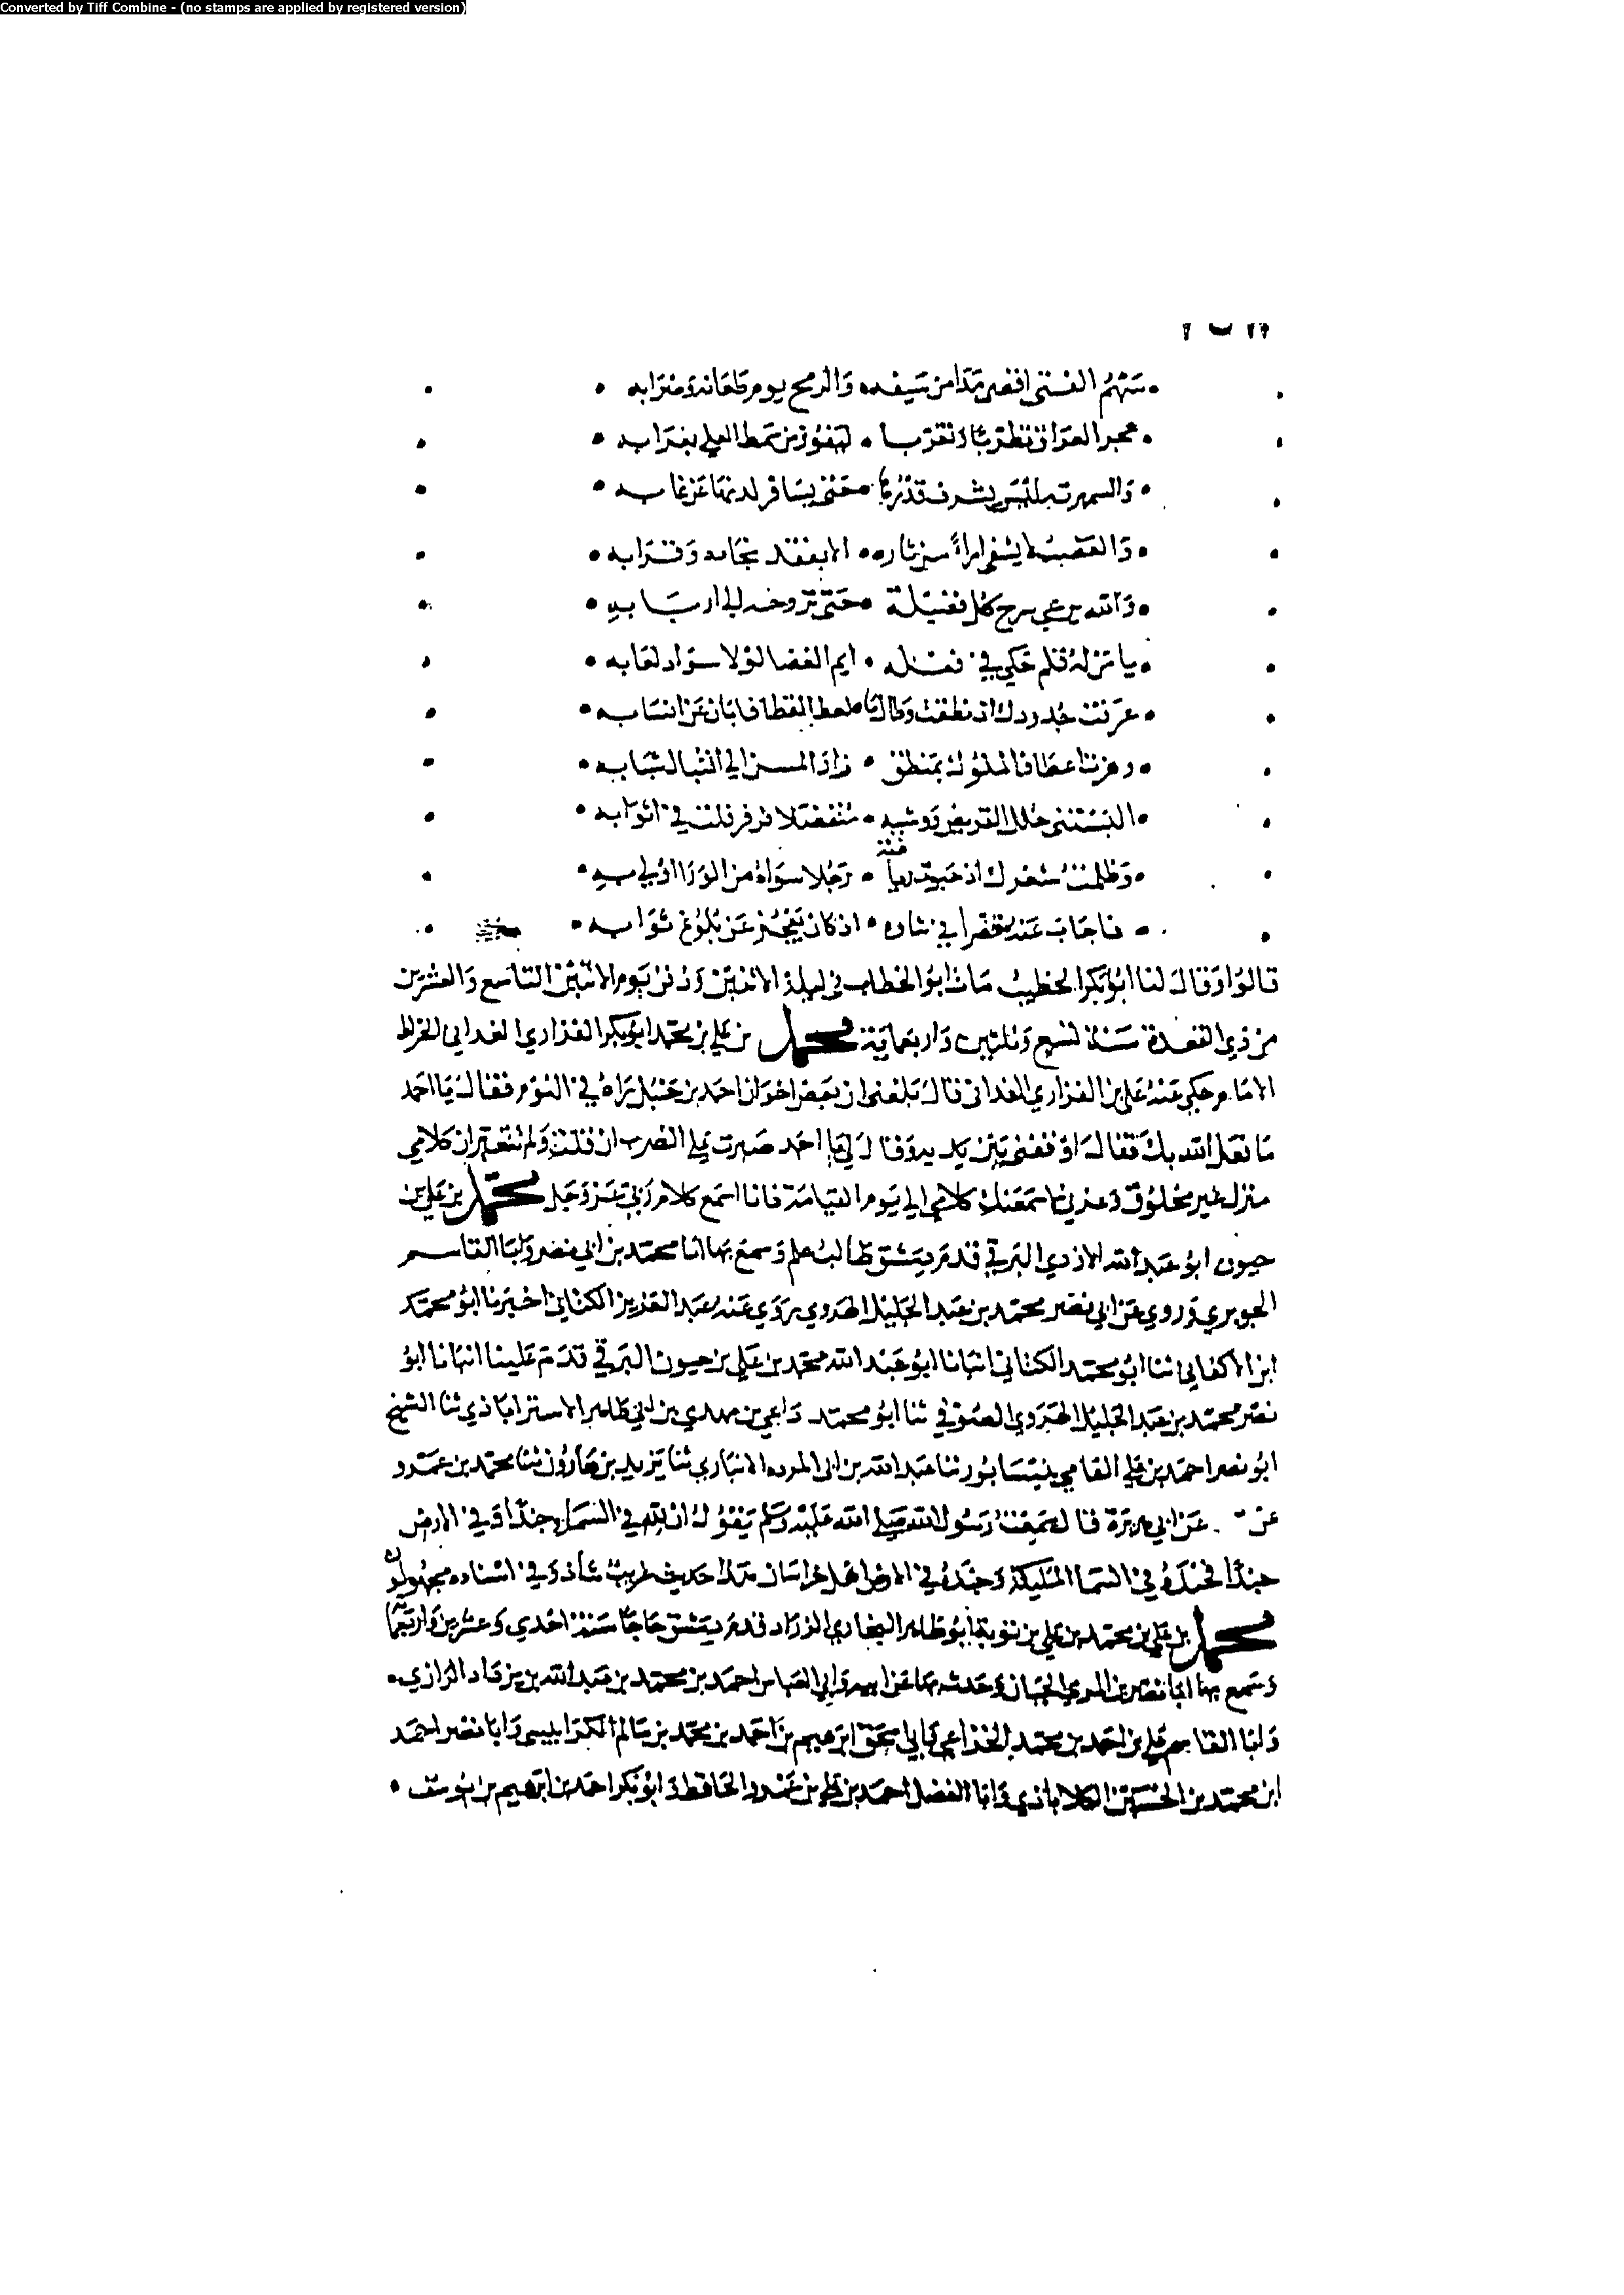 Converted by Tiff Combine - (no stamps are applied by registered version)
سهم الفتى اقصر مدا من سيفه والرمح يوم طعانه وضرابه
هجر العراق تطربا وتغربا ليفوز من سمط العلى بغرابه
والسمهرية ليس يشرف قدرها حتى يسافر لدنها عن غابه
والعضب لا يشفي امراً من ثاره الا بفقد نجاده وقرابه
والله يرعى سرح كل فضيلة حتى تروحه الى اربابه
يا من له قلم حكى في فعله ايم الغضا لولا سواد لعابه
عرفت جدودك اذ نطقت وطالما لغط القطا فابان عن انسابه
وهززت اعطاف الملوك بمنطق زاد المسن الى الشباب
البستني حلل القريض ووشيه متفضلا فرفلت في اثوابه
وظلمت شعرك اذ حبوت رجلا سواه من الورا اولى به
فاجاب عنه مقصرا في شاوه اذ كان يعجز عن بلوغ ثوابه
قالوا وقال لنا ابو بكر الخطيب مات ابو الخطاب في ليلة الاثنين ودفن يوم الاثنين التاسع والعشرين
من ذي القعدة سنة تسع وثلثين واربعماية محمد بن علي بن محمد ابو بكر الفزاري
الامام حكى عنه علي بن الفزاري قال بلغني ان بعض اخوان احمد بن حنبل راه في النوم فقال يا احمد
ما فعل الله بك فقال اوقفني بين يديه وقال لي يا احمد صبرت على الضرب ان قلت ولم تتغير ان كلامي
منزل غير مخلوق وعزتي لاسمعنك كلامي الى يوم القيامة فانا اسمع كلام ربي عز وجل محمد بن علي بن
حيون ابو عبد الله الازدي البرقي قدم دمشق طالب علم وسمع بها ابا محمد بن ابي نصر وابا القاسم
الجوبري وروى عن ابي نصر محمد بن عبد الجليل الهروي يروي عنه عبد العزيز الكتاني اخبرنا ابو محمد
ابن الاكفاني ثنا ابو محمد الكتاني انبانا ابو عبد الله محمد بن علي بن حيون البرقي قدم علينا انبانا ابو
نصر محمد بن عبد الجليل الهروي الصوفي ثنا ابو محمد داعي بن مهدي بن ابي طاهر الاستراباذي ثنا الشيخ
ابو نصر احمد بن علي القامي بنيسابور ثنا عبد الله بن ابي الانباري ثنا يزيد بن هارون ثنا محمد بن عمرو
عن عن ابي هريرة قال سمعت رسول الله صلى الله عليه وسلم يقول ان لله في السما جندا وفي الارض
جندا فجنده في السما المليكة وجنده في الارض اهل خراسان هذا حديث غريب شاذ وفي اسناده مجهول
محمد بن علي بن محمد بن علي بن بوية ابو طاهر البخاري الزراد قدم دمشق حاجا سنة احدى وعشرين واربعما
وسمع بها ابا نصر بن المري الجبان وحدث بها عن ابيه وابي العباس احمد بن محمد بن عبد الله بن الرازي
وابا القاسم علي بن احمد بن محمد الخزاعي وابي اسحق ابرهيم بن احمد بن محمد بن سالم الكرابيسي وابا نصر احمد
ابن محمد بن الحسين الكلاباذي وابا الفضل احمد بن علي بن عمرو الحافظ وابو بكر احمد بن ابرهيم بن يوسف